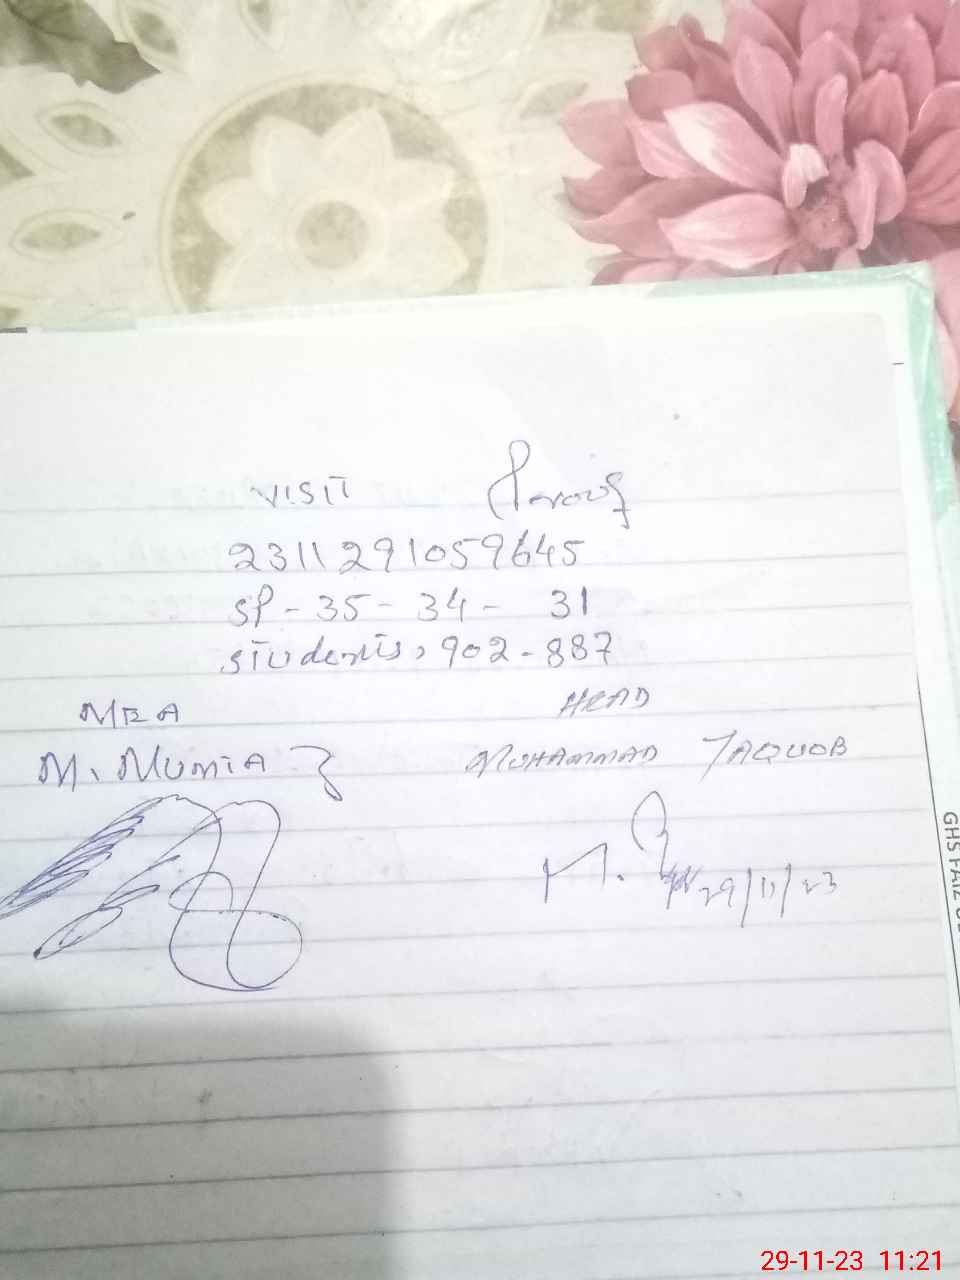 VISIT
2311291059645
SP - 35 - 34 - 31
students, 902 - 887
MEA HEAD
MOHAMMAD YAQUOB
29/11/23
GHS FAIZ
29-11-23 11:21